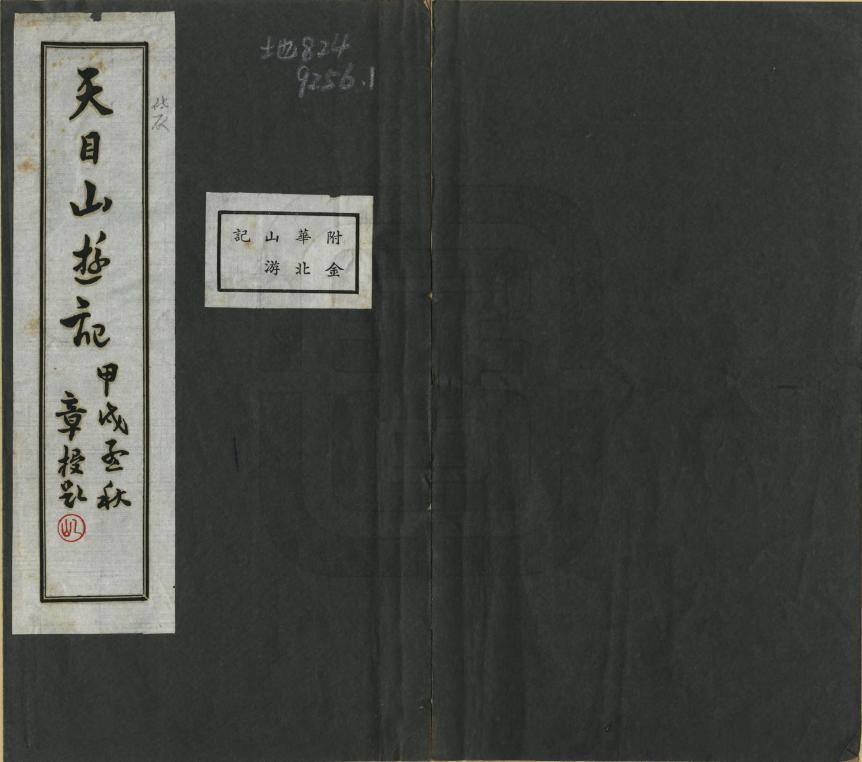 天目山遊記
甲戌孟秋
章梫題
附金
華北
山游
記
地824
9256.1